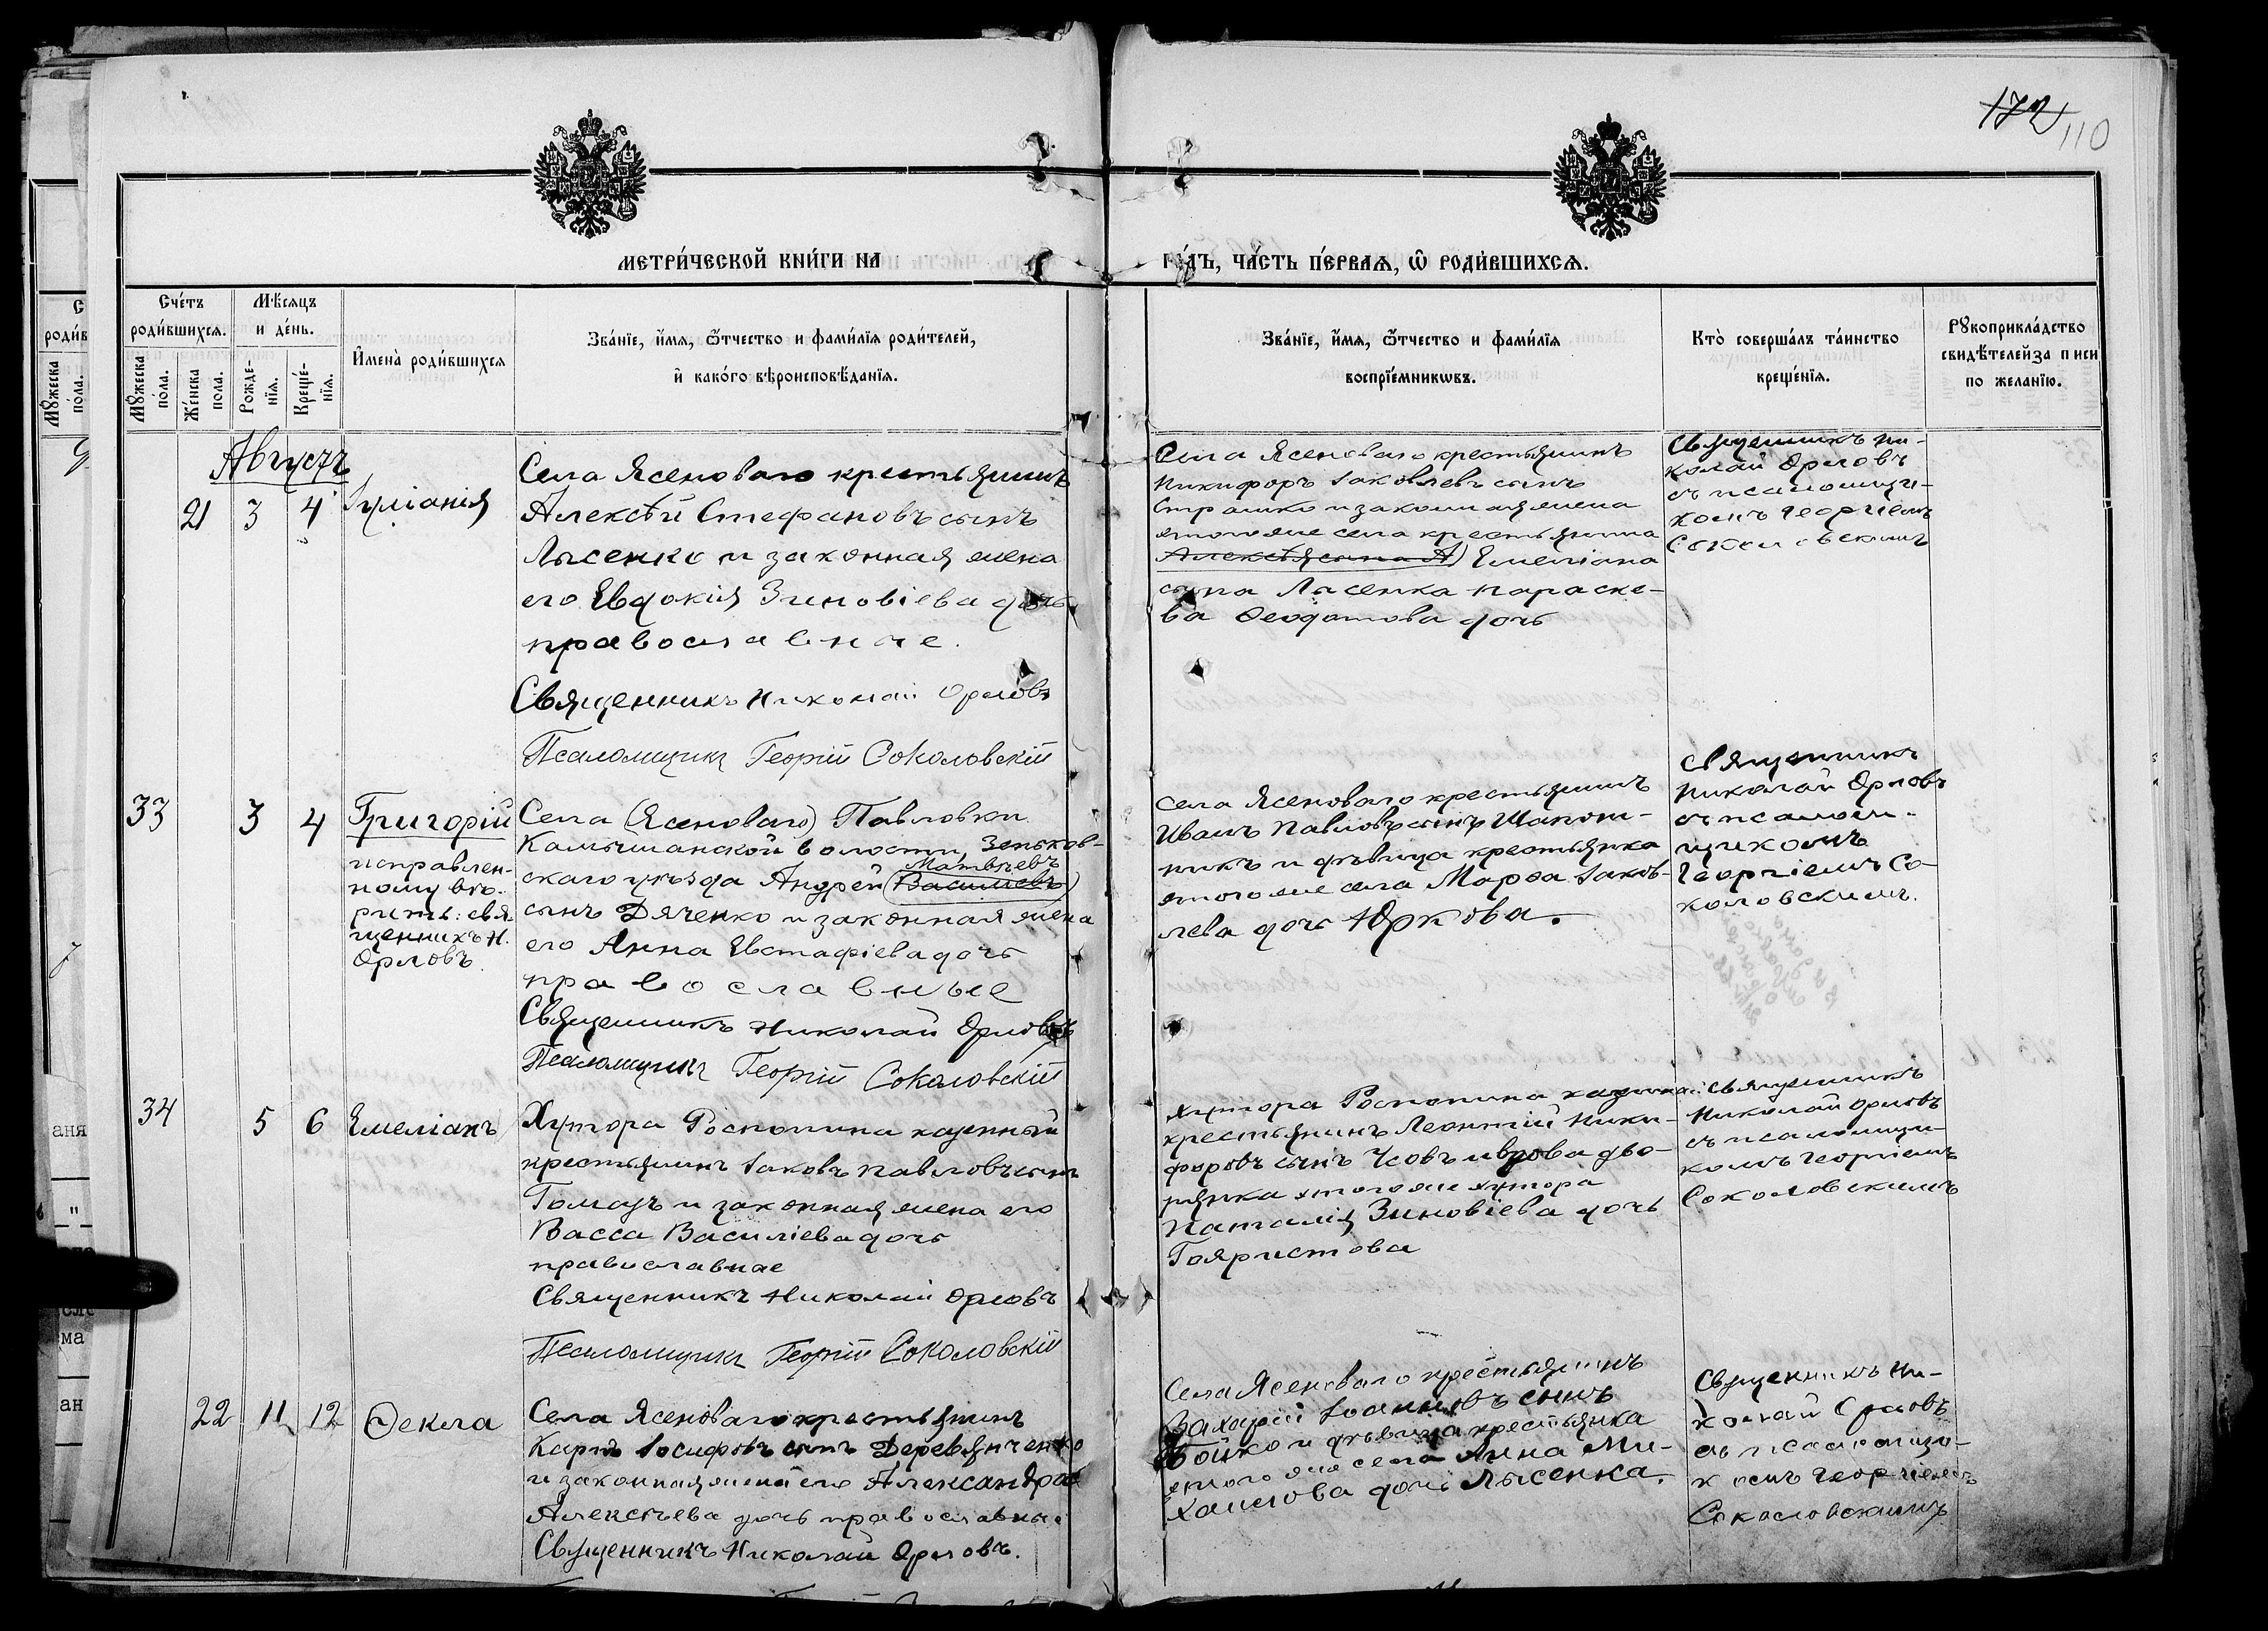 172 110
МЕТРИ́ЧЕСКОЙ КНИ́ГИ НА
ГО́ДЪ, ЧА́СТЬ ПЕ́РВАЯ, Ѡ РОДИ́ВШИХСЯ.
Сче́тъ роди́вшихся.
Мѣ́сяцъ и де́нь.
Имена̀ роди́вшихся
Зва́нїе, и́мя, ѻ́тчество и фами́лїя роди́телей,
и како́го вѣроисповѣ́данїя.
Зва́нїе, и́мя, ѻ́тчество и фами́лїя
воспрїе́мникѡвъ.
Кто̀ соверша́лъ та́инство
креще́нїя.
Рꙋкоприкла́дство
свидѣ́телей за писи
по жела́нїю.
Мꙋ́жеска по́ла.
Же́нска по́ла.
Рожде́нїя.
Креще́нїя.
Августъ
21 3 4 Іуліанія
Села Ясеноваго крестьянинъ
Алексѣй Стефановъ сынъ
Лысенко и законная жена
его Евдокія Зиновіева дочь
православные.
Священникъ Николай Орловъ
Псаломщикъ Георгій Соколовскій
Села Ясеноваго крестьянинъ
Никифоръ Іаковлевъ сынъ
Страшко и законная жена
этого же села крестьянина
Алексѣя сына А) Емеліана
сына Лысенка Параске-
ва Феодотова дочь
Священникъ Ни-
колай Орловъ
съ псаломщи-
комъ Георгіемъ
Соколовскимъ
33 3 4 Григорій
исправлен-
ному вѣ-
рить: свя
щенникъ Н.
Орловъ.
Села (Ясеноваго) Павловки
Камышанской волости, Зеньков-
Матвѣевъ
скаго уѣзда Андрей (Василіевъ)
сынъ Дяченко и законная жена
его Анна Евстафіева дочь
православные
Священникъ Николай Орловъ
Псаломщикъ Георгій Соколовскій
Села Ясеноваго крестьянинъ
Иванъ Павловъ сынъ Шапош-
никъ и дѣвица крестьянка
этого же села Марѳа Іаков-
лева дочь Юркова.
Священникъ
Николай Орловъ
съ псалом-
щикомъ
Георгіемъ Со-
коловскимъ.
34 5 6 Емеліанъ
Хутора Распопина казенный
крестьянинъ Іаковъ Павловъ сынъ
Гомазъ и законная жена его
Васса Василіева дочь
православные
Священникъ Николай Орловъ
Псаломщикъ Георгій Соколовскій
Хутора Распопина
крестьянинъ Леонтій Ники-
форовъ сынъ дво-
рянка этого же хутора
Наталія Зиновіева дочь
Священникъ
Николай Орловъ
съ псаломщи-
комъ Георгіемъ
Соколовскимъ
22 11 12 Ѳекла
Села Ясеноваго крестьянинъ
Карпъ Іосифовъ сынъ Деревянченко
и законная жена его Александра
Алексѣева дочь православные
Священникъ Николай Орловъ.
Села Ясеноваго крестьянинъ
Захарій Іоанновъ сынъ
Бойко и дѣвица крестьянка
этого же села Анна Ми-
хаилова дочь Лысенка.
Священникъ Ни-
колай Орловъ
съ псаломщи-
комъ Георгіемъ
Соколовскимъ